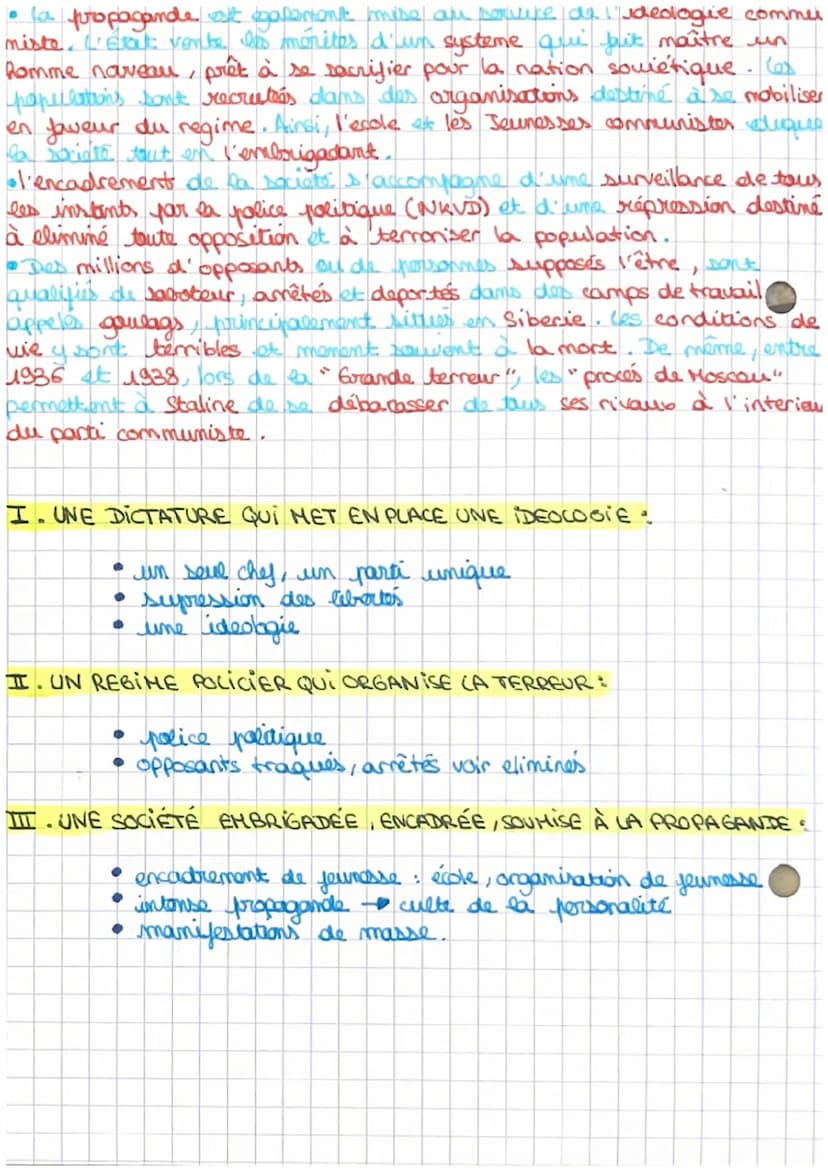 • la propagande est également mise au service de l'idéologie commu
niste. L'Etat vante les mérites d'un systeme qui fait maître un
homme nouveau, prêt à se sacrifier pour la nation soviétique. Les
populations sont recrutées dans des organisations destiné à se mobiliser
en faveur du regime. Ainsi, l'ecole et les Jeunesses communistes eduque
la société tout en l'embrigadant.
• l'encadrement de la société s'accompagne d'une surveillance de tous
les instants par la police politique (NKVD) et d'une répression destiné
à eliminé toute opposition et à terroriser la population.
• Des millions d'opposants ou de personnes supposés l'être, sont
qualifiés de saboteur, arrêtés et deportés dans des camps de travail
appelés goulags, principalement situés en Siberie. Les conditions de
vie y sont terribles et menent souvent à la mort. De même, entre
1936 et 1938, lors de la "Grande terreur", les "procés de Moscou"
permettent à Staline de se débarasser de tous ses rivaux à l'interieu
du parti communiste.
I. UNE DICTATURE QUI MET EN PLACE UNE IDEOLOGIE :
• un seul chef, un parti unique
• supression des libertés
• une ideologie
II. UN REGIME POLICIER QUI ORGANISE LA TERREUR :
• police politique
• opposants traqués, arrêtés voir eliminés
III. UNE SOCIÉTÉ EMBRIGADÉE, ENCADRÉE, SOUMISE À LA PROPAGANDE :
• encadrement de jeunesse : école, organisation de jeunesse
• intense propagande → culte de la personalité
• manifestations de masse.